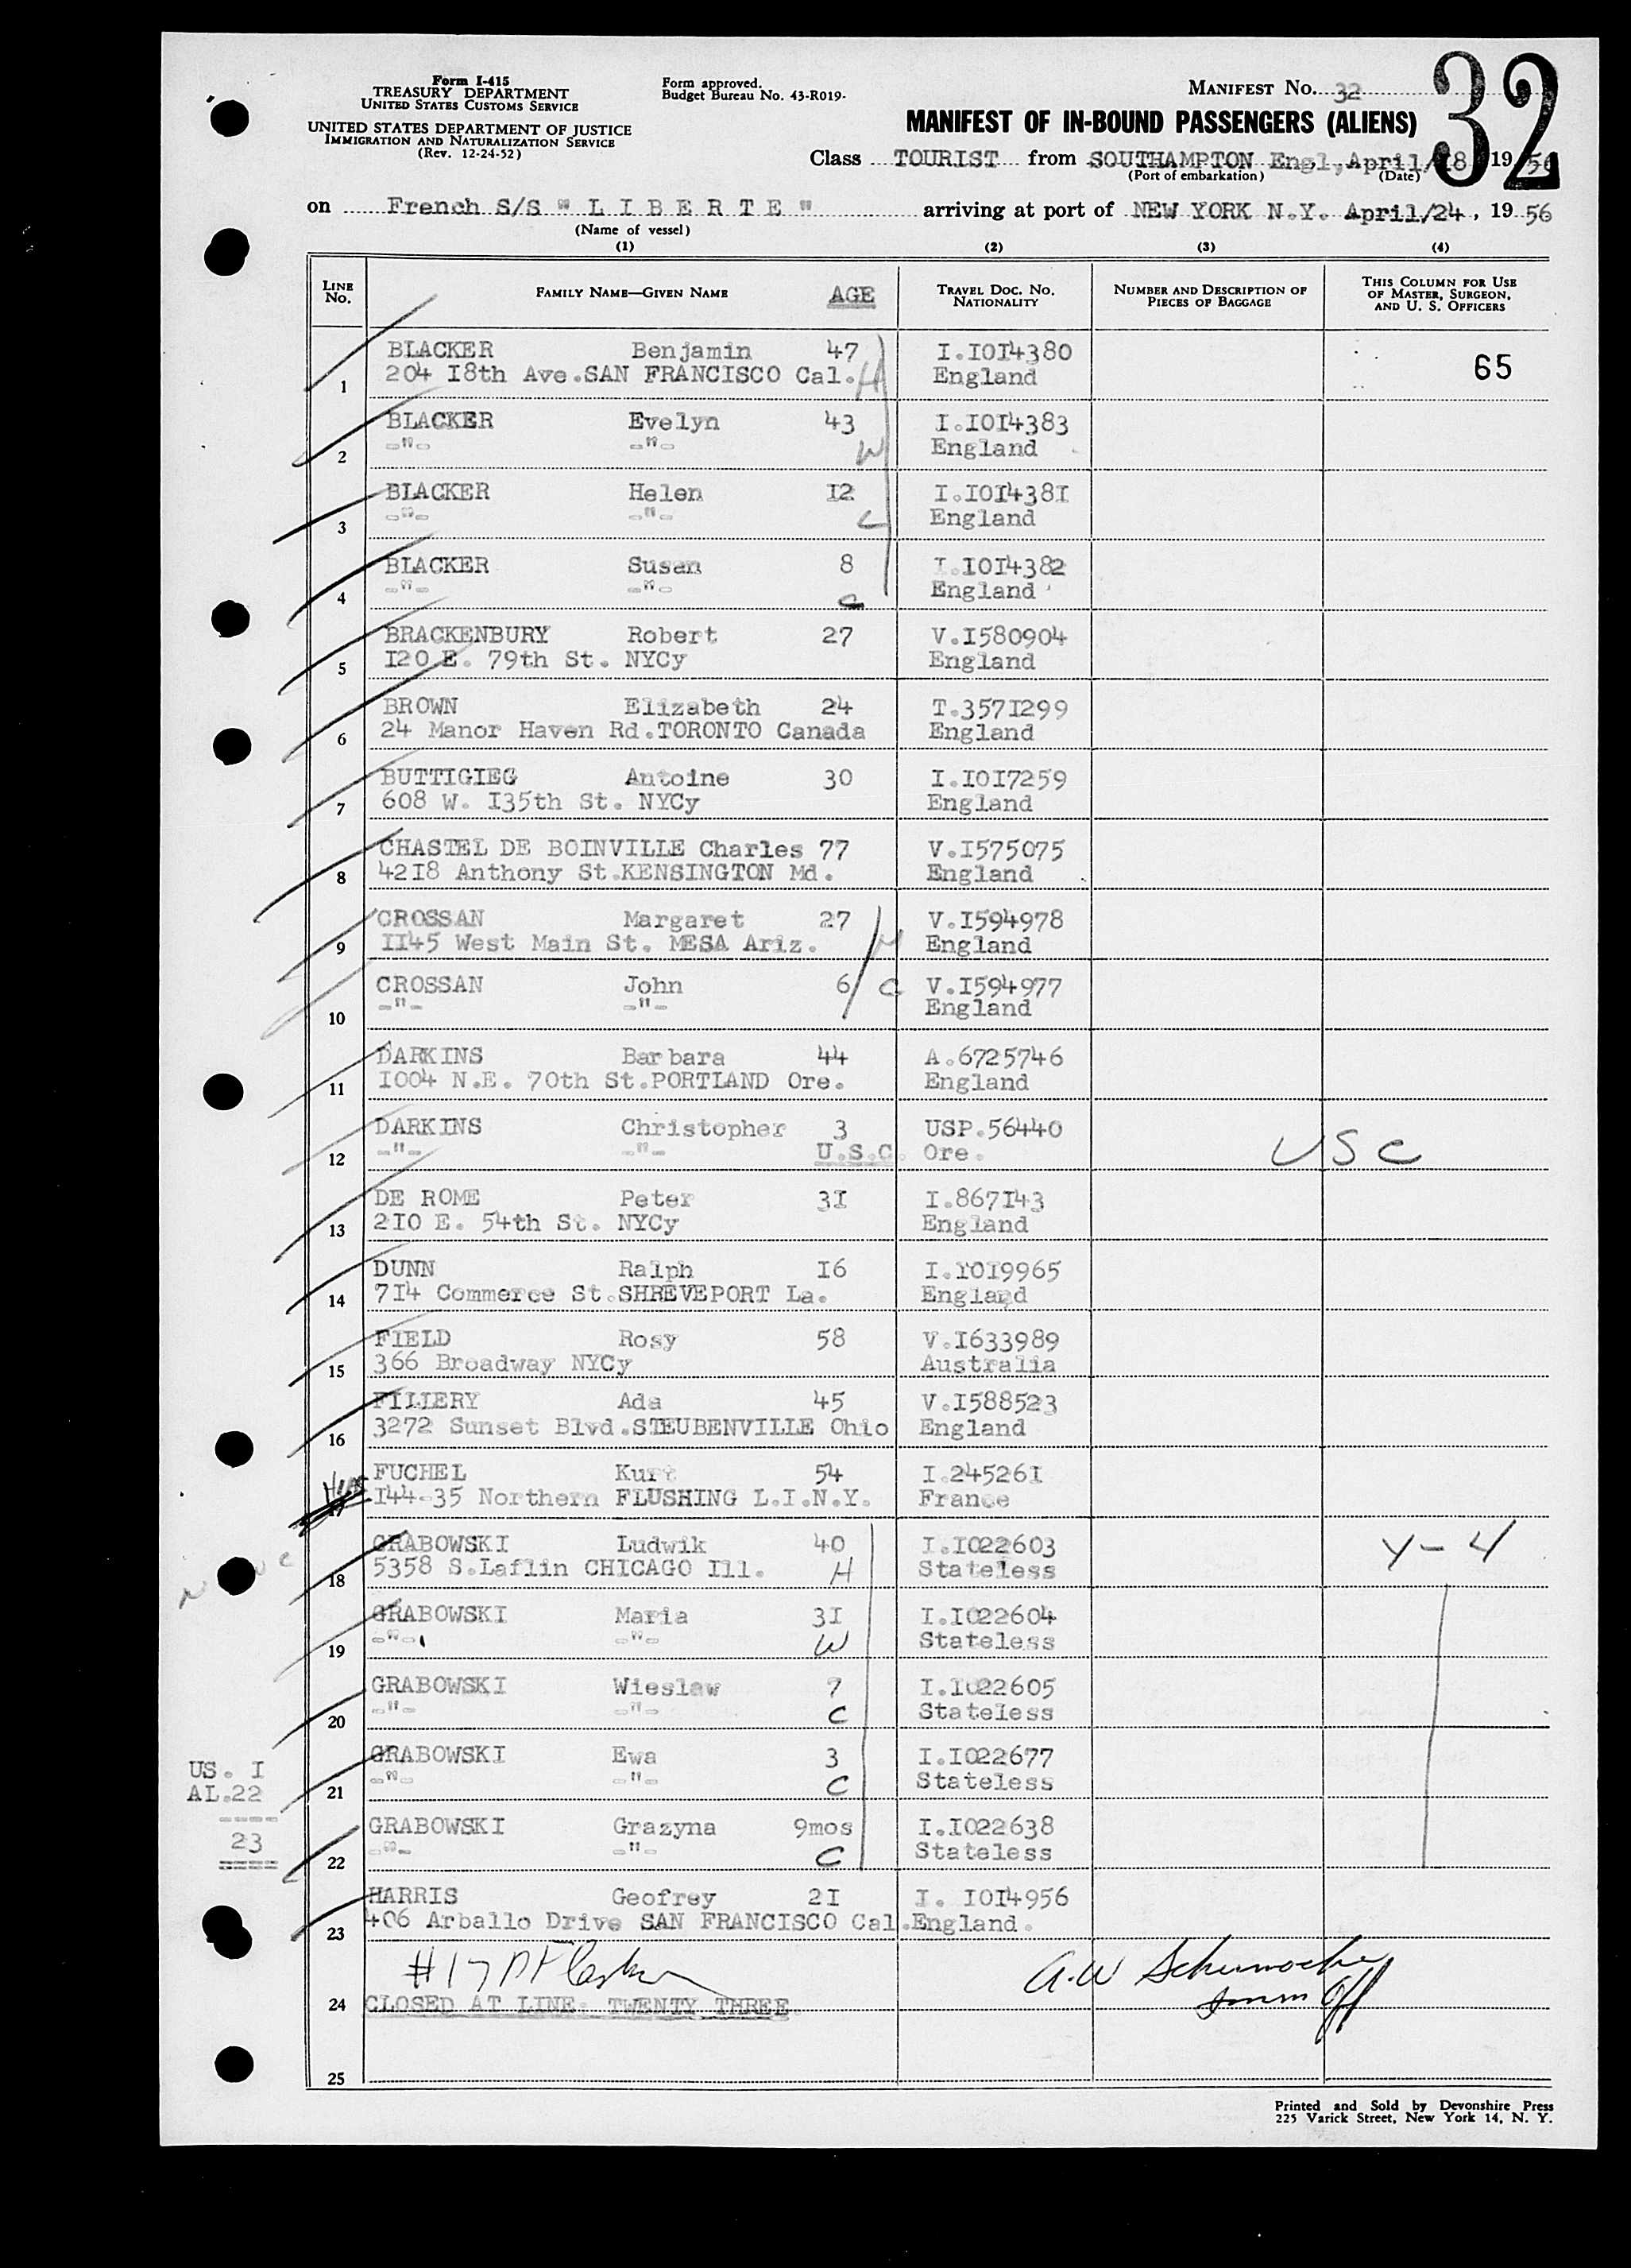 Form I-415
TREASURY DEPARTMENT
UNITED STATES CUSTOMS SERVICE
UNITED STATES DEPARTMENT OF JUSTICE
IMMIGRATION AND NATURALIZATION SERVICE
(Rev. 12-24-52)
Form approved.
Budget Bureau No. 43-R019-
MANIFEST No. 32
32
MANIFEST OF IN-BOUND PASSENGERS (ALIENS)
Class TOURIST from SOUTHAMPTON Engl, April/18 1956
(Port of embarkation) (Date)
on French S/S " L I B E R T E " arriving at port of NEW YORK N.Y. April/24, 1956
(Name of vessel)
(1) (2) (3) (4)
LINE No. FAMILY NAME—GIVEN NAME AGE TRAVEL DOC. No. NATIONALITY NUMBER AND DESCRIPTION OF PIECES OF BAGGAGE THIS COLUMN FOR USE OF MASTER, SURGEON, AND U. S. OFFICERS
BLACKER Benjamin 47 I.IOI4380 65
1 204 I8th Ave.SAN FRANCISCO Cal. H England
BLACKER Evelyn 43 I.IOI4383
2 -"- -"- W England
BLACKER Helen I2 I.IOI438I
3 -"- -"- C England
BLACKER Susan 8 I.IOI4382
4 -"- -"- C England
BRACKENBURY Robert 27 V.I580904
5 I20 E. 79th St. NYCy England
BROWN Elizabeth 24 T.357I299
6 24 Manor Haven Rd.TORONTO Canada England
BUTTIGIEG Antoine 30 I.IOI7259
7 608 W. I35th St. NYCy England
CHASTEL DE BOINVILLE Charles 77 V.I575075
8 42I8 Anthony St.KENSINGTON Md. England
CROSSAN Margaret 27 V.I594978
9 II45 West Main St. MESA Ariz. M England
CROSSAN John 6 C V.I594977
10 -"- -"- England
DARKINS Barbara 44 A.6725746
11 I004 N.E. 70th St.PORTLAND Ore. England
DARKINS Christopher 3 USP.56440
12 -"- -"- U.S.C. Ore. USC
DE ROME Peter 3I I.867I43
13 2I0 E. 54th St. NYCy England
DUNN Ralph I6 I.IOI9965
14 7I4 Commerce St.SHREVEPORT La. England
FIELD Rosy 58 V.I633989
15 366 Broadway NYCy Australia
FILLERY Ada 45 V.I588523
16 3272 Sunset Blvd.STEUBENVILLE Ohio England
FUCHEL Kurt 54 I.24526I
17 I44-35 Northern FLUSHING L.I.N.Y. France
GRABOWSKI Ludwik 40 I.IO22603 Y-4
18 5358 S.Laflin CHICAGO Ill. H Stateless
GRABOWSKI Maria 3I I.IO22604
19 -"- -"- W Stateless
GRABOWSKI Wieslaw 7 I.IO22605
20 -"- -"- C Stateless
GRABOWSKI Ewa 3 I.IO22677
21 -"- -"- C Stateless
GRABOWSKI Grazyna 9mos I.IO22638
22 -"- -"- C Stateless
US. I
AL.22
----
23
====
HARRIS Geofrey 2I I. IOI4956
23 406 Arballo Drive SAN FRANCISCO Cal.England.
#17
A.W
24 CLOSED AT LINE: TWENTY THREE
25
Printed and Sold by Devonshire Press
225 Varick Street, New York 14, N. Y.